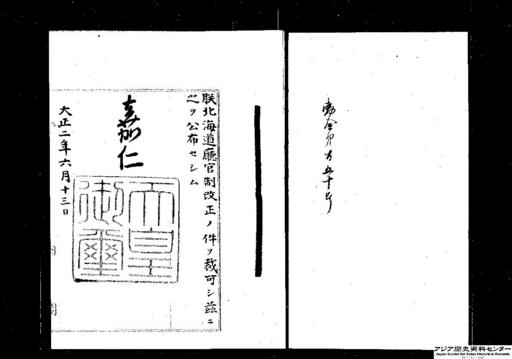 勅令第百五十号
朕北海道廳官制改正ノ件ヲ裁可シ茲ニ
之ヲ公布セシム
嘉仁
天皇
御璽
大正二年六月十三日
内閣
アジア歴史資料センター
Japan Center for Asian Historical Records